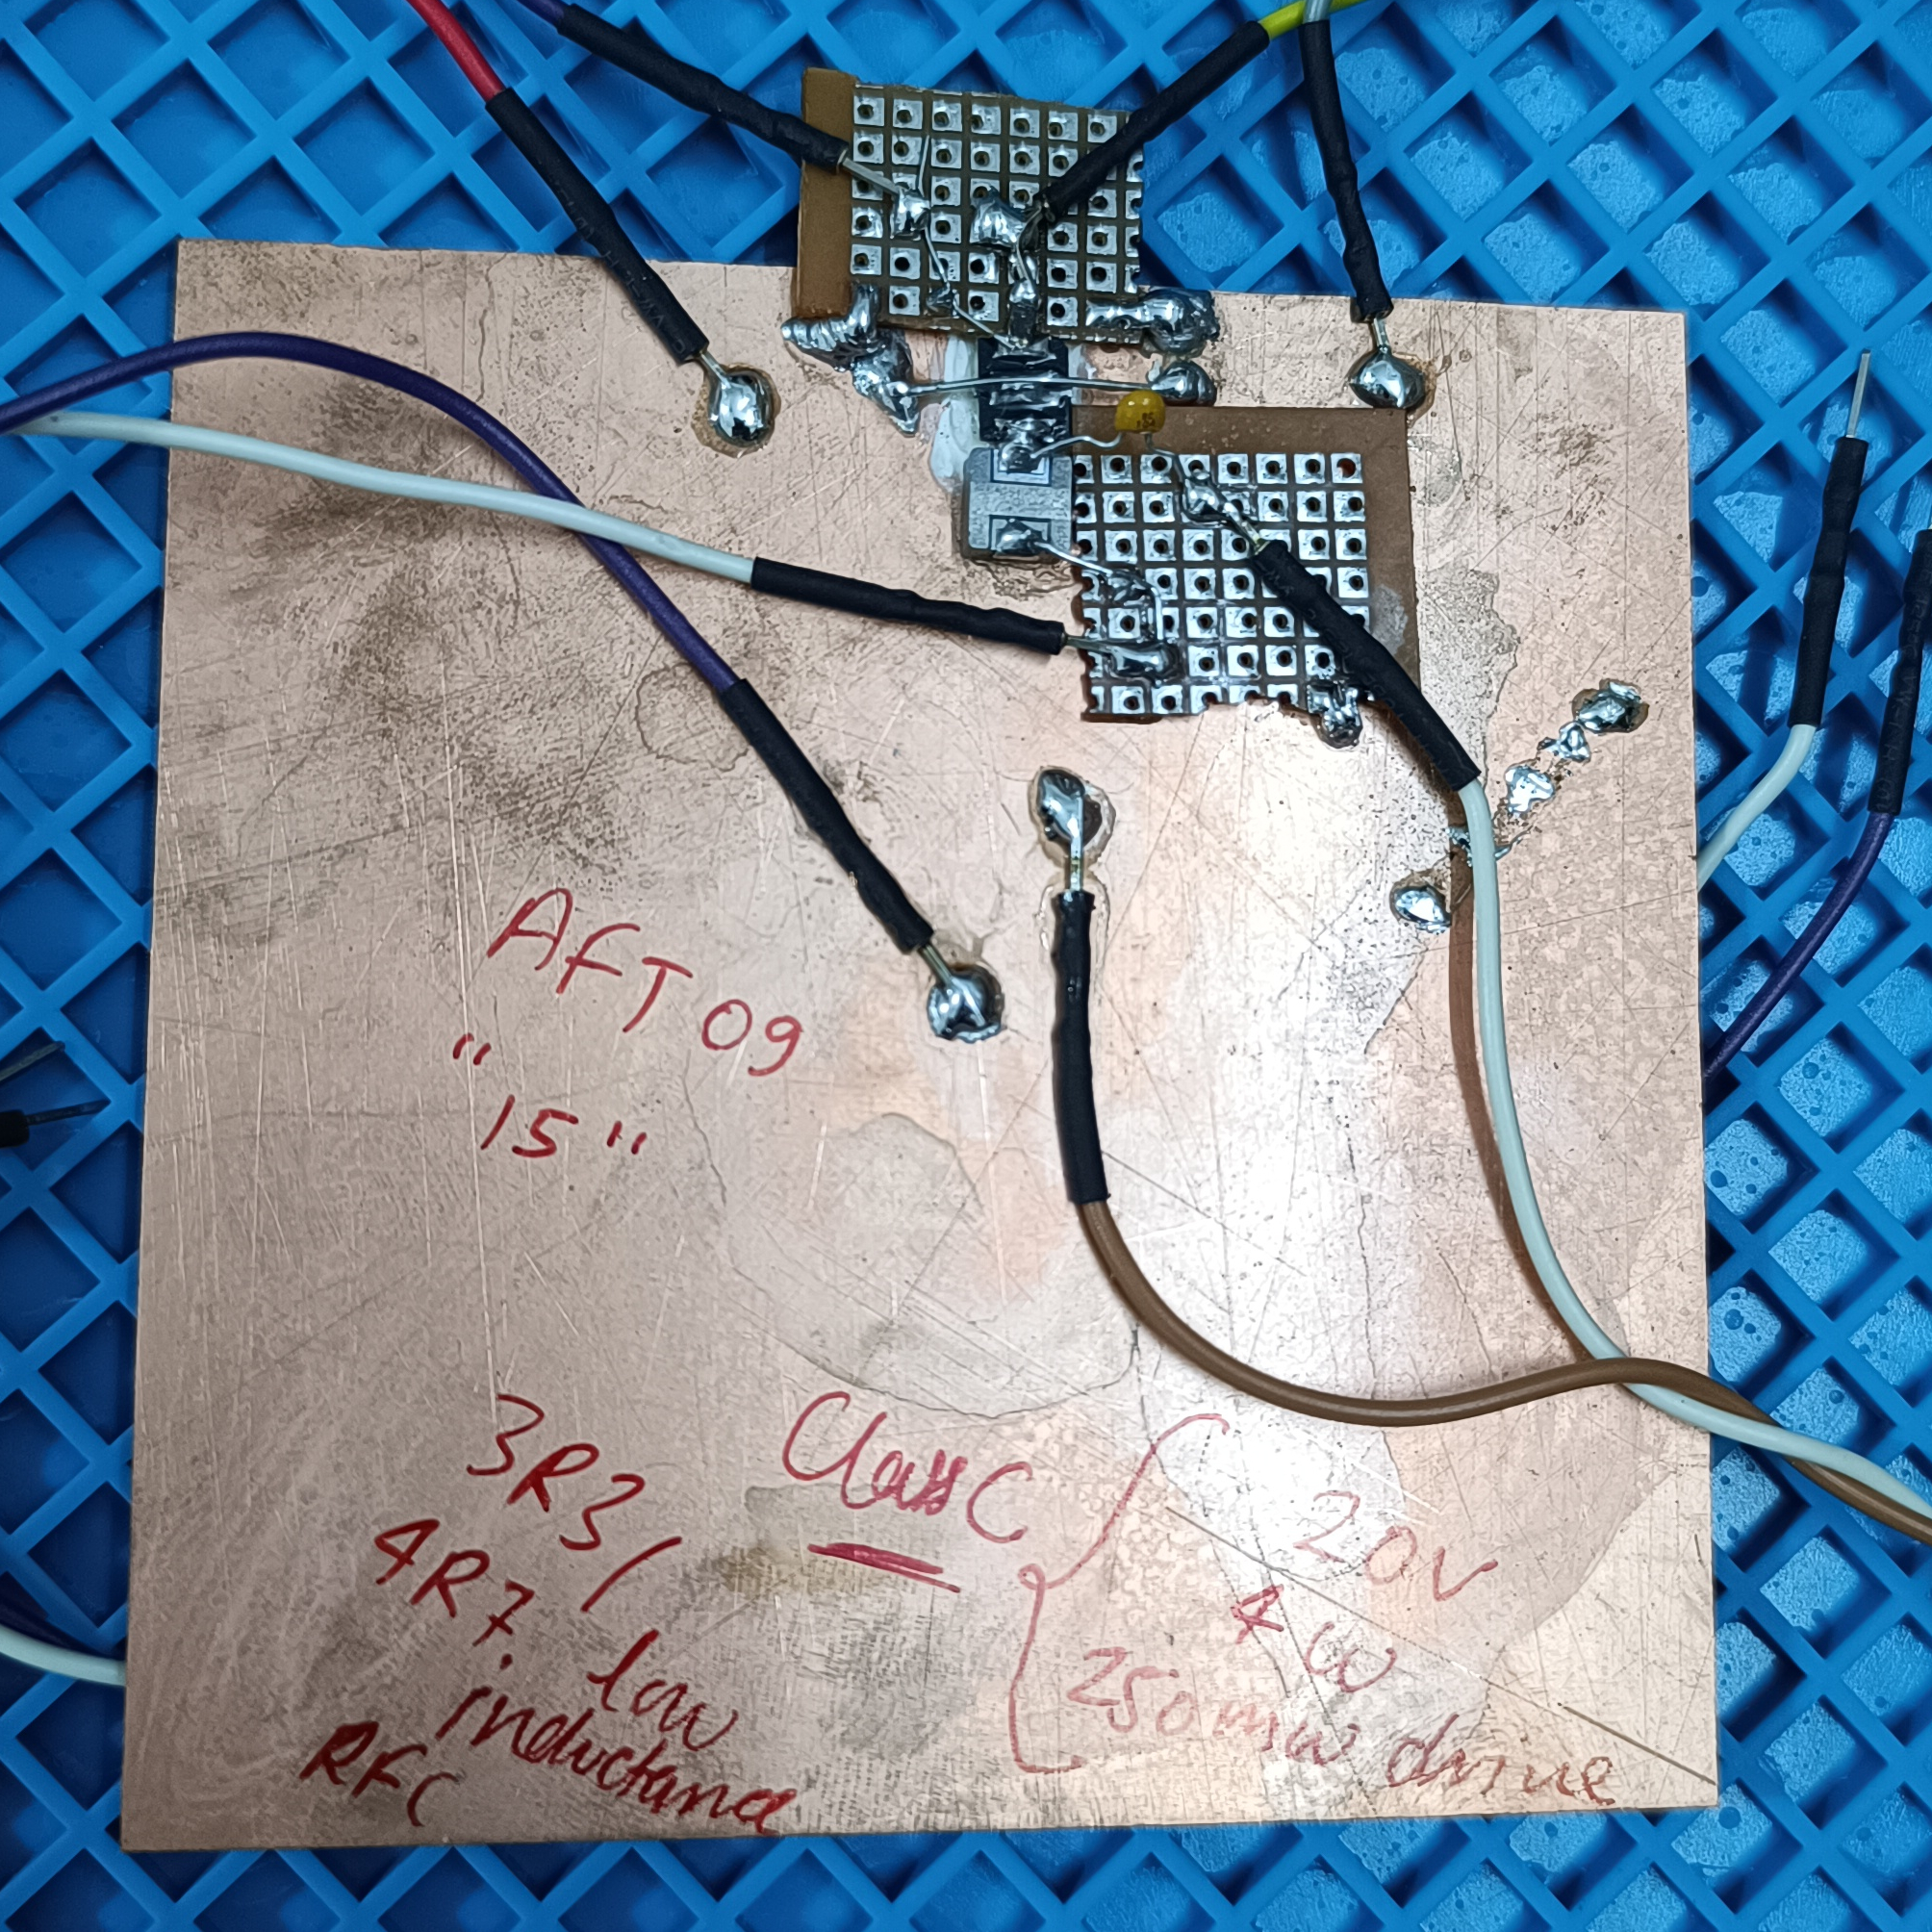 AFT09
"15"
3R3/
4R7.
low
inductance
RFC
Class C
20V
4W
250mW drive